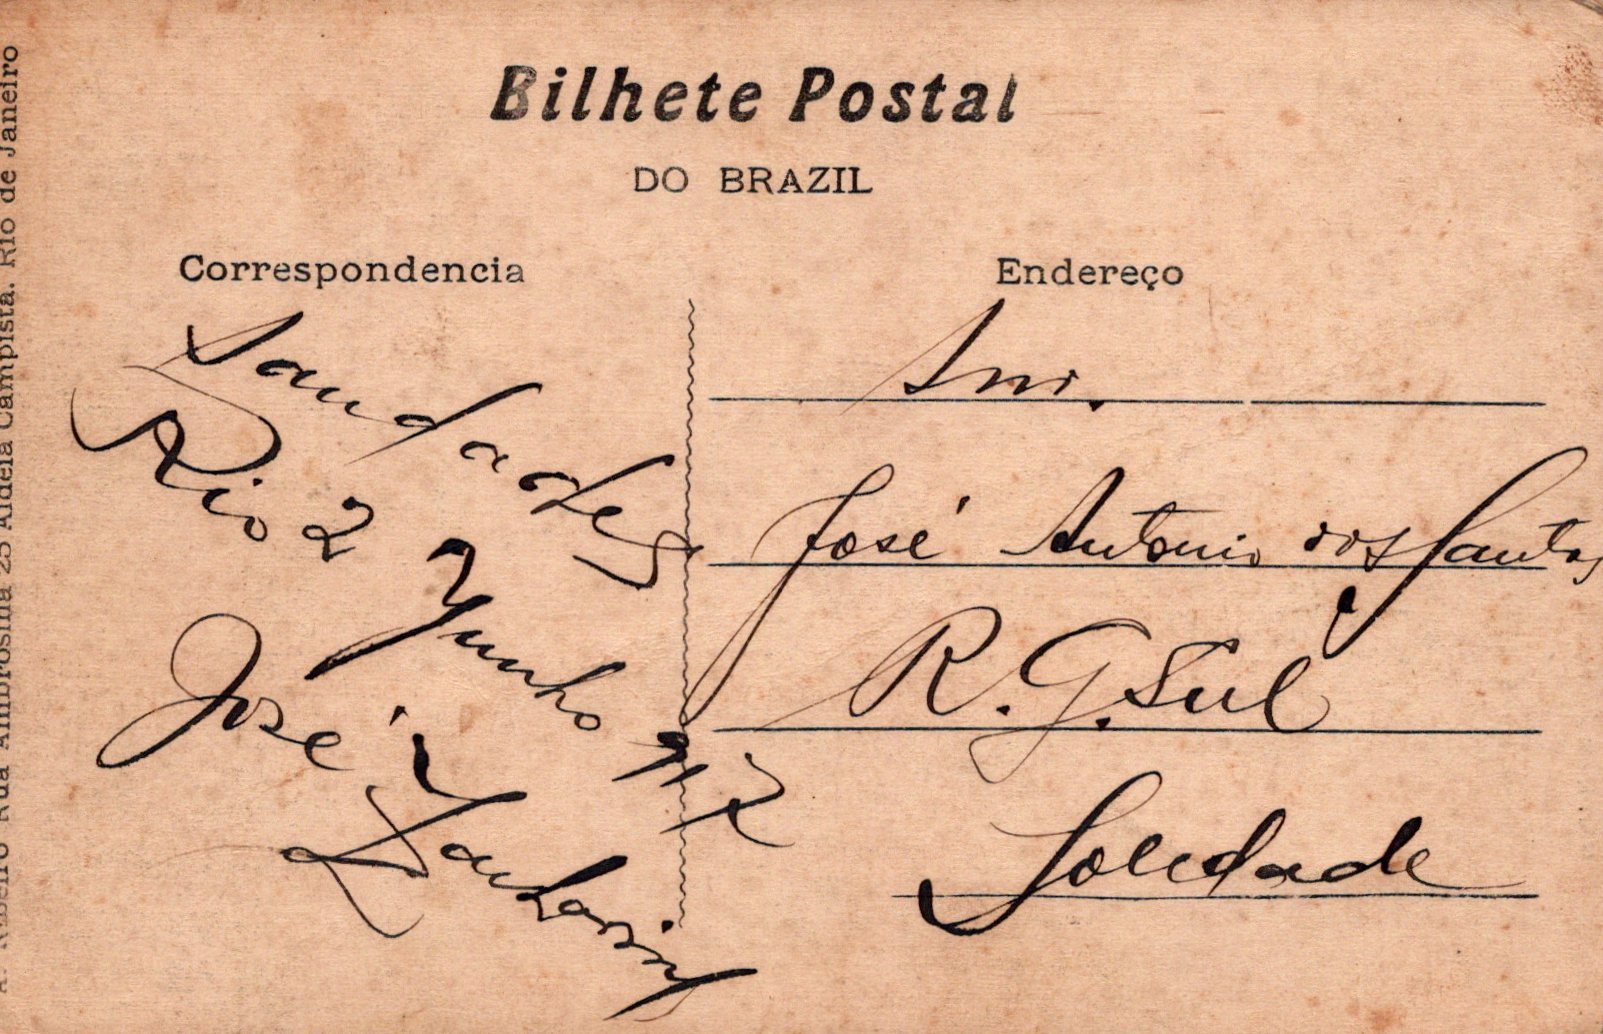 Bilhete Postal
DO BRAZIL
Correspondencia
Saudades
Rio 2 Junho 912
José
Endereço
Snr.
José Antonio dos Santos
R. G. Sul
Soledade
A. Ribeiro Rua Ambrosina 25 Aldeia Campista. Rio de Janeiro